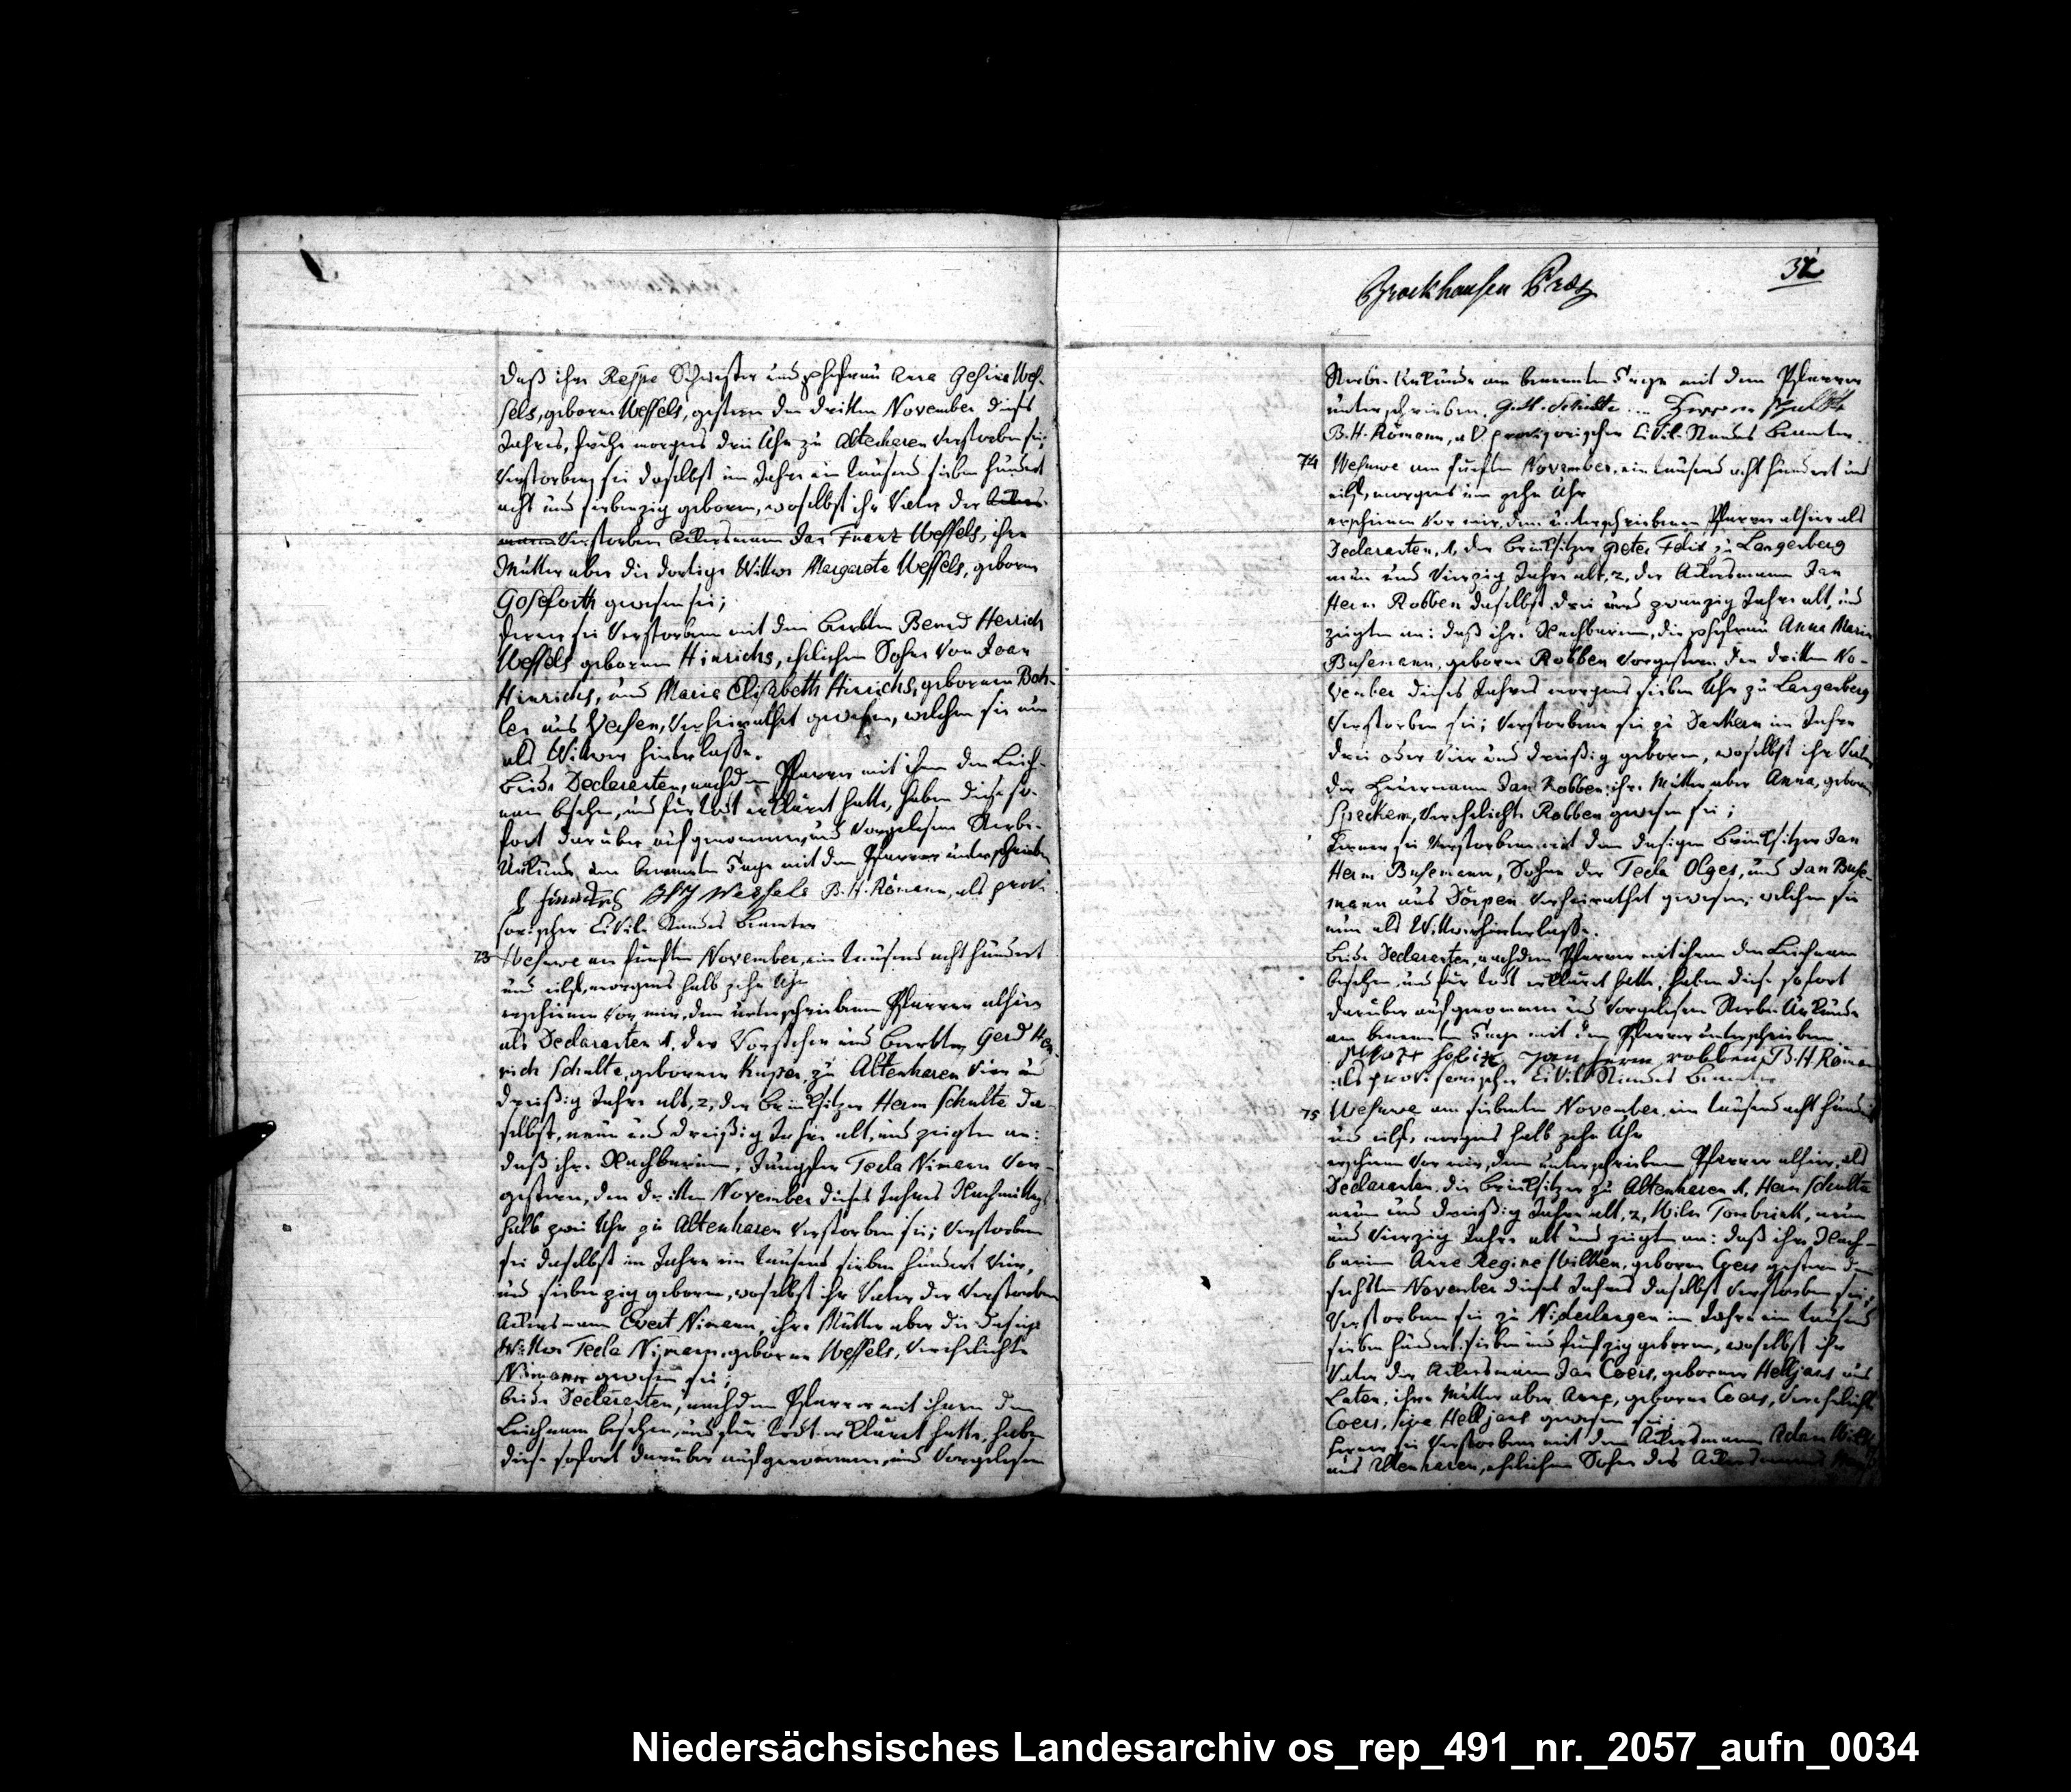 daß ihre Respe Schwester und Ehefrau Anna Gesina Wes-
sels, geborne Wessels, gestern den dritten November dieses
Jahres, frühe morgens drei Uhr zu Altenharen verstorben sei;
Verstorbene sei daselbst im Jahre ein tausend sieben hundert
acht und siebenzig geboren, woselbst ihr Vater der Ackers-
mann verstorbene Ackersmann Jan Frantz Wessels, ihre
Mutter aber die dortige Wittwe Margareta Wessels, geborne
Goseforth gewesen sei;
ferner sei Verstorbene mit dem Beerbten Bernd Henrich
Wessels gebornen Hinrichs, ehelichen Sohne von Joan
Hinrichs, und Maria Elisabeth Hinrichs, gebornen Boh-
ler aus Versen, verheirathet gewesen, welchen sie nun
als Witwer hinterlasse.
Beide Declaranten, nachdem Pfarrer mit ihnen den Leich-
nam besehen, und für todt erklärt hatte, haben diese so-
fort darüber aufgenommene, und vorgelesene Sterbe-
Urkunde am benannten Tage mit dem Pfarrer unterschrieben
BH Wessels B. H. Römann, als provi-
sorischer Civil-Standes Beamter
73 Wesuwe am fünften November, ein tausend acht hundert
und eilf, morgens halb zehn Uhr
erschienen vor mir, dem unterschriebenen Pfarrer alhier
als Declaranten 1, der Vorsteher und Beerbter Gerd Hen-
rich Schulte, geborner Kuper, zu Altenharen vier und
dreißig Jahre alt, 2, der Brinksitzer Herm Schulte da-
selbst, neun und dreißig Jahre alt, und zeigten an:
daß ihre Nachbarinn, Jungfer Tecla Nimann vor-
gestern, den dritten November dieses Jahres Nachmittags
halb zwei Uhr zu Altenharen verstorben sei; Verstorbene
sei daselbst im Jahre ein tausend sieben hundert vier,
und siebenzig geboren, woselbst ihr Vater der verstorbene
Ackersmann Evert Nimann, ihre Mutter aber die dasige
Wittwe Tecla Nimann, geborne Wessels, verehelichte
Nimann gewesen sei;
beide Declaranten, nachdem Pfarrer mit ihnen den
Leichnam besehen, und für todt erklärt hatte, haben
diese sofort darüber aufgenommene, und vorgelesene
Brockhausen Präs
32
Sterbe-Urkunde am benannten Tage mit dem Pfarrer
unterschrieben. Herm Schulte
B. H. Römann, als provisorischer Civil-Standes Beamter.
74 Wesuwe am fünften November, ein tausend acht hundert und
eilf, morgens um zehn Uhr
erschienen vor mir, dem unterschriebenen Pfarrer alhier als
Declaranten, 1, der Brinksitzer Peter Felix zu Langenberg
neun und vierzig Jahre alt, 2, der Ackersmann Jan
Herm Robben daselbst drei und zwanzig Jahre alt, und
zeigten an: daß ihre Nachbarinn, die Ehefrau Anna Maria
Busemann, geborne Robben vorgestern den dritten No-
vember dieses Jahres morgens sieben Uhr zu Langenberg
verstorben sei; Verstorbene sei zu Dankern im Jahre
drei oder vier und dreißig geboren, woselbst ihr Vater
der Heuermann Jan Robben, ihre Mutter aber Anna, geborne
Specken, verehelichte Robben gewesen sei;
Ferner sei Verstorbene mit dem dasigen Brinksitzer Jan
Herm Busemann, Sohne der Tecla Olges, und Jan Buse-
mann aus Dörpen verheirathet gewesen, welchen sie
nun als Wittwer hinterlasse.
Beide Declaranten, nachdem Pfarrer mit ihnen den Leichnam
besehen, und für todt erklärt hatte, haben diese sofort
darüber aufgenommene und vorgelesene Sterbe-Urkunde
am benannten Tage mit dem Pfarrer unterschrieben.
Jan herm robben B. H. Römann
als provisorischer Civil-Standes Beamter
75 Wesuwe am siebenten November, ein tausend acht hundert
und eilf, morgens halb zehn Uhr
erschienen vor mir, dem unterschriebenen Pfarrer alhier, als
Declaranten, die Brinksitzer zu Altenharen 1, Herm Schulte
neun und dreißig Jahre alt, 2, Wilm Tombrink, neun
und vierzig Jahre alt und zeigten an: daß ihre Nach-
barinn Anna Regine Wilken, geborne Coers gestern den
sechsten November dieses Jahres daselbst verstorben sei;
Verstorbene sei zu Niderlangen im Jahre ein tausend
sieben hundert sieben und fünfzig geboren, woselbst ihr
Vater der Ackersmann Jan Coers, geborner Helljans aus
Laten, ihre Mutter aber Anna, geborne Coers, verehelichte
Coers, Helljans gewesen sei;
ferner sei Verstorbene mit dem Ackersmann Adam Wilken
aus Altenharen, ehelichen Sohne des Ackersmanns
Niedersächsisches Landesarchiv os_rep_491_nr._2057_aufn_0034